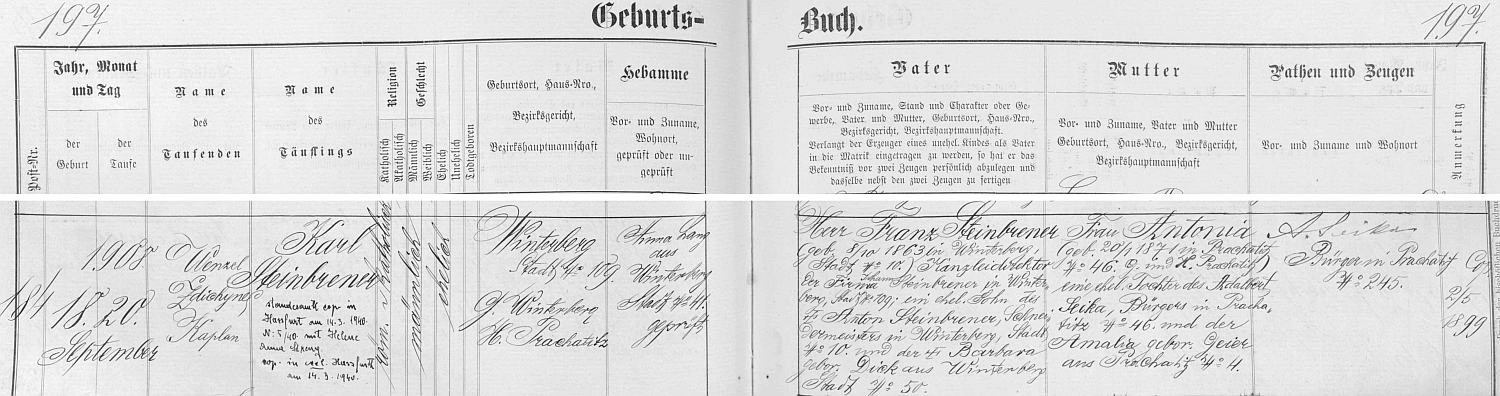 197.
Geburts-
Buch.
197.
Post-Nr.
Jahr, Monat
und Tag
der
Geburt
der
Taufe
Name
des
Taufenden
Name
des
Täuflings
Religion
Katholisch
Akatholisch
Geschlecht
Männlich
Weiblich
Ehelich
Unehelich
Todtgeboren
Geburtsort, Haus-Nro.,
Bezirksgericht,
Bezirkshauptmannschaft
Hebamme
Vor- und Zuname,
Wohnort,
geprüft oder un-
geprüft
Vater
Vor- und Zuname, Stand und Charakter oder Ge-
werbe, Vater und Mutter, Geburtsort, Haus-Nro.,
Bezirksgericht, Bezirkshauptmannschaft.
Verlangt der Erzeuger eines unehel. Kindes als Vater
in die Matrik eingetragen zu werden, so hat er das
Bekenntniß vor zwei Zeugen persönlich abzulegen und
dasselbe nebst den zwei Zeugen zu fertigen
Mutter
Vor- und Zuname, Vater und Mutter
Geburtsort, Haus-Nro., Bezirksgericht,
Bezirkshauptmannschaft
Pathen und Zeugen
Vor- und Zuname und Wohnort
Anmerkung
184
1908.
18. 20.
September
Wenzel
Zdichynec
Kaplan
Karl
Steinbrener
standesamtl. cop. in
Hassfurt am 14.3.1940.
N: 5/40 mit Helene
Anna
cop. in Hassfurth
am 14.3.1940.
röm. katholisch
männlich
ehelich
Winterberg
Stadt No 109.
G. Winterberg
H. Prachatitz
Anna Lang
aus
Winterberg
Stadt No 41.
geprüft
Herr Franz Steinbrener
(geb. 8/10 1863 in Winterberg,
Stadt No 10.) Kanzleidirektor
der Firma Johann Steinbrener in Winter-
berg, Stadt No 109; ein ehel. Sohn des
Anton Steinbrener, Schnei-
dermeisters in Winterberg, Stadt
No 10. und der Barbara
gebor. Dick aus Winterberg
Stadt No 50.
Frau Antonia
(geb. 20/1 1871 in Prachatitz
No 46. G. und H. Prachatitz)
eine ehel. Tochter des Adalbert
Seika, Bürgers in Pracha-
titz No 46. und der
Amalia gebor. Geier
aus Prachatitz No 4.
A. Seika
Bürger in Prachatitz
No 245.
Cop.
2/5
1899